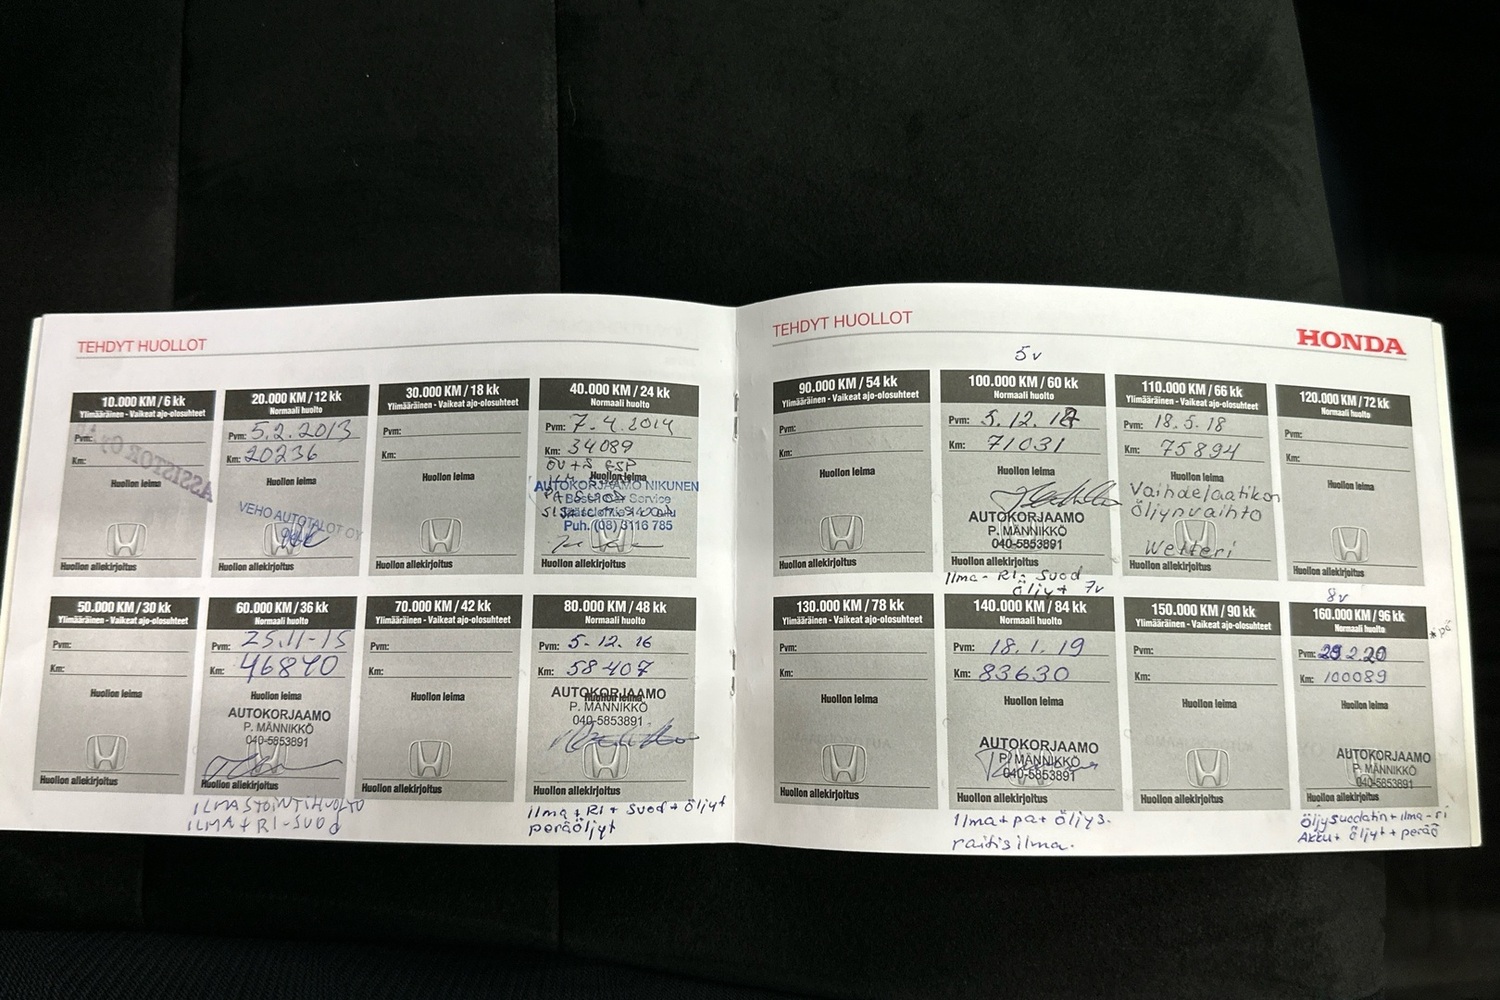 TEHDYT HUOLLOT
10.000 KM / 6 kk
Ylimääräinen - Vaikeat ajo-olosuhteet
Pvm:
Km:
Huollon leima
ASSISTOR Oy
Huollon allekirjoitus
20.000 KM / 12 kk
Normaali huolto
Pvm: 5.2.2013
Km: 20236
Huollon leima
VEHO AUTOTALOT OY
Huollon allekirjoitus
30.000 KM / 18 kk
Ylimääräinen - Vaikeat ajo-olosuhteet
Pvm:
Km:
Huollon leima
Huollon allekirjoitus
40.000 KM / 24 kk
Normaali huolto
Pvm: 7.4.2014
Km: 34089
Huollon leima
AUTOKORJAAMO NIKUNEN
Bosch Car Service
Puh. (08) 3116 785
Huollon allekirjoitus
50.000 KM / 30 kk
Ylimääräinen - Vaikeat ajo-olosuhteet
Pvm:
Km:
Huollon leima
Huollon allekirjoitus
60.000 KM / 36 kk
Normaali huolto
Pvm: 25.11-15
Km: 46840
Huollon leima
AUTOKORJAAMO
P. MÄNNIKKÖ
040-5853891
Huollon allekirjoitus
ILMASTOINTIHUOLTO
ILMA+RI-SUOD
70.000 KM / 42 kk
Ylimääräinen - Vaikeat ajo-olosuhteet
Pvm:
Km:
Huollon leima
Huollon allekirjoitus
80.000 KM / 48 kk
Normaali huolto
Pvm: 5-12.16
Km: 58407
Huollon leima
AUTOKORJAAMO
P. MÄNNIKKÖ
040-5853891
Huollon allekirjoitus
Ilma+RI+ suod+ öljyt
peräöljyt
TEHDYT HUOLLOT
HONDA
5v
90.000 KM / 54 kk
Ylimääräinen - Vaikeat ajo-olosuhteet
Pvm:
Km:
Huollon leima
Huollon allekirjoitus
100.000 KM / 60 kk
Normaali huolto
Pvm: 5.12.17
Km: 71031
Huollon leima
AUTOKORJAAMO
P. MÄNNIKKÖ
040-5853891
Huollon allekirjoitus
Ilma-RI- suod
öljyt
110.000 KM / 66 kk
Ylimääräinen - Vaikeat ajo-olosuhteet
Pvm: 18.5.18
Km: 75894
Huollon leima
Vaihdelaatikon
öljynvaihto
Wetteri
Huollon allekirjoitus
120.000 KM / 72 kk
Normaali huolto
Pvm:
Km:
Huollon leima
Huollon allekirjoitus
130.000 KM / 78 kk
Ylimääräinen - Vaikeat ajo-olosuhteet
Pvm:
Km:
Huollon leima
Huollon allekirjoitus
7v
140.000 KM / 84 kk
Normaali huolto
Pvm: 18.1.19
Km: 83630
Huollon leima
AUTOKORJAAMO
P. MÄNNIKKÖ
040-5853891
Huollon allekirjoitus
Ilma+pa+ öljys.
raitisilma.
150.000 KM / 90 kk
Ylimääräinen - Vaikeat ajo-olosuhteet
Pvm:
Km:
Huollon leima
Huollon allekirjoitus
8v
160.000 KM / 96 kk
Normaali huolto
Pvm: 29 2.20
Km: 100089
Huollon leima
AUTOKORJAAMO
P. MÄNNIKKÖ
040-5853891
Huollon allekirjoitus
öljysuodatin+ilma-ri
Akku+ öljyt+ peräö